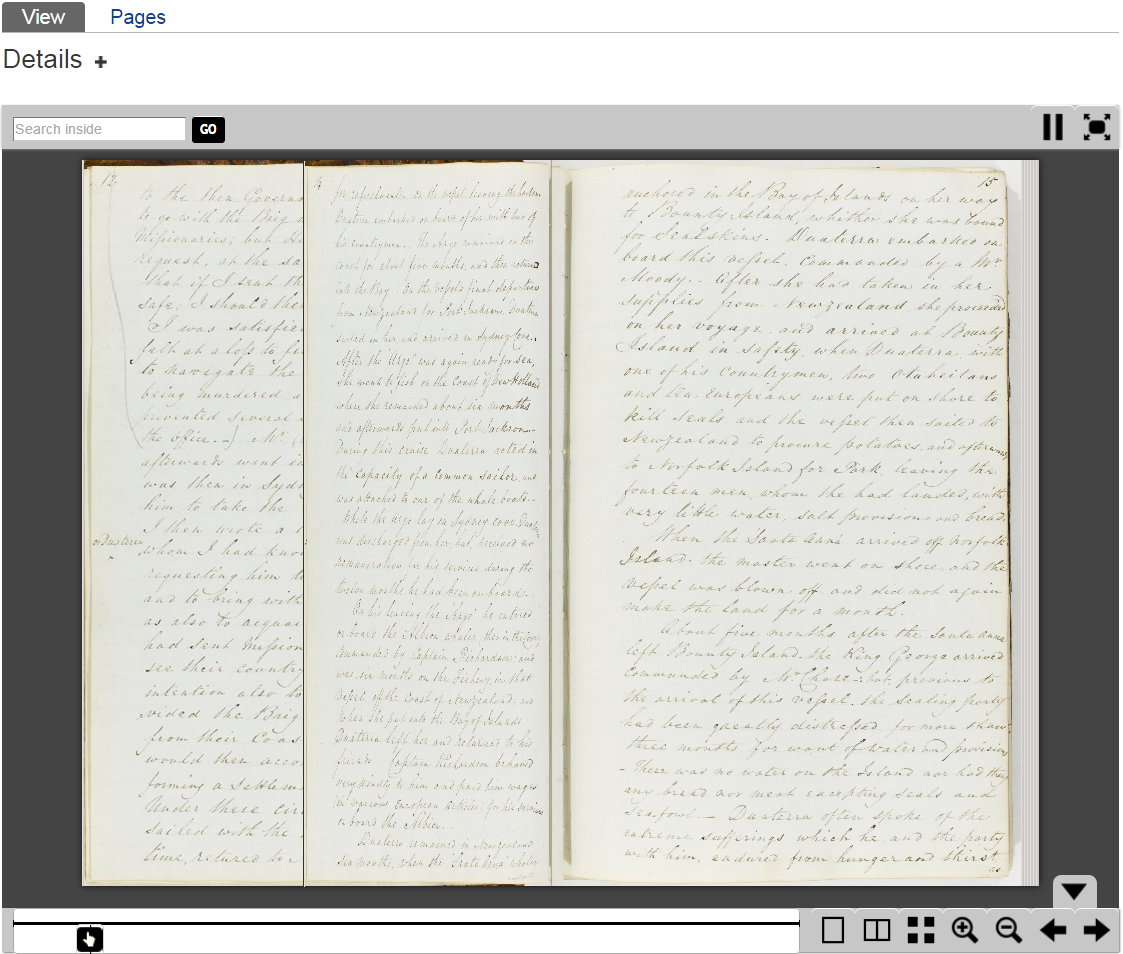 View Pages
Details +
Search inside GO
12
to the then Governo
to go with the Brig
Missionaries; but
request, at the sa
that if I sent th
safe, I should the
I was satisfie
felt at a loss to
to navigate the
being murdered a
prevented several
the office. — Mr
afterwards went in
was then in Sydn
him to take the
I then wrote a
Duaterra
whom I had know
requesting him to
and to bring with
as also to acquai
had sent Mission
see their country
intention also to
vided the Brig
from their Coas
would then acco
forming a Settlem
Under these cir
sailed with the
time, retured to
14
for refreshments. On the vessel leaving the harbour
Duaterra embarked on board of her with two of
his countrymen. The Argo remained on the
coast for about five months, and then returned
into the Bay. On the vessels final departure
from Newzealand for Port Jackson, Duaterra
sailed in her and arrived in Sydney Cove.
After the "Argo" was again ready for sea,
she went to fish on the Coast of New Holland
where she remained about six months
and afterwards put into Port Jackson —
During this cruise Duaterra acted in
the capacity of a common sailor, and
was attached to one of the whale boats —
While the Argo lay in Sydney Cove, Duaterra
was discharged from her, but received no
remuneration for his services during the
twelve months he had been on board.
On his leaving the 'Argo' he entered
on board the Albion whaler, then in the Cove,
Commanded by Captain Richardson; and
was six months on the fishery, in that
Vessel off the Coast of Newzealand, and
when she put into the Bay of Islands
Duaterra left her and returned to his
friends. Captain Richardson behaved
very kindly to him and paid him wages
in various European articles for his services
on board the Albion.
Duaterra remained in Newzealand
six months, when the 'Santa Anna' whaler
15
anchored in the Bay of Islands on her way
to Bounty Island, whither she was bound
for Seal Skins. Duaterra embarked on
board this vessel, commanded by a Mr
Moody. After she had taken in her
supplies from Newzealand she proceeded
on her voyage, and arrived at Bounty
Island in safety, when Duaterra, with
one of his countrymen, two Otaheitans
and ten Europeans were put on shore to
kill seals and the vessel then sailed to
Newzealand to procure potatoes, and afterwards
to Norfolk Island for Pork, leaving the
fourteen men, whom she had landed, with
very little water, salt provision and bread.
When the Santa Anna arrived off Norfolk
Island, the master went on shore, and the
vessel was blown off and did not again
make the land for a month.
About five months after the Santa Anna
left Bounty Island, the King George arrived
Commanded by Mr Chase — but, previous to
the arrival of this vessel, the sealing party
had been greatly distressed for more than
three months for want of water and provision
— There was no water on the Island nor had they
any bread nor meat excepting seals and
seafowl — Duaterra often spoke of the
extreme sufferings which he, and the party
with him, endured from hunger and thirst,
as